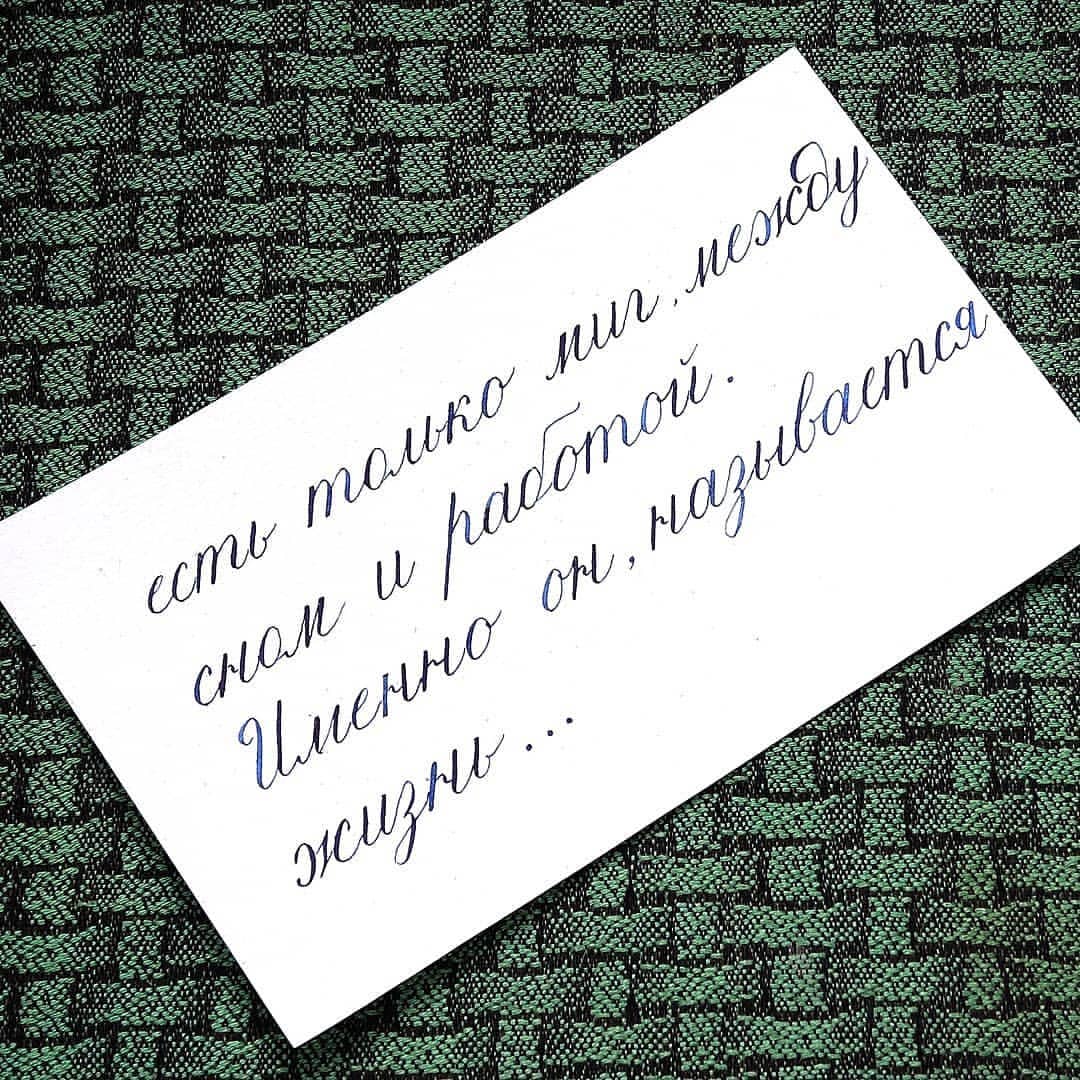 есть только миг, между
сном и работой.
Именно он, называется
жизнь...